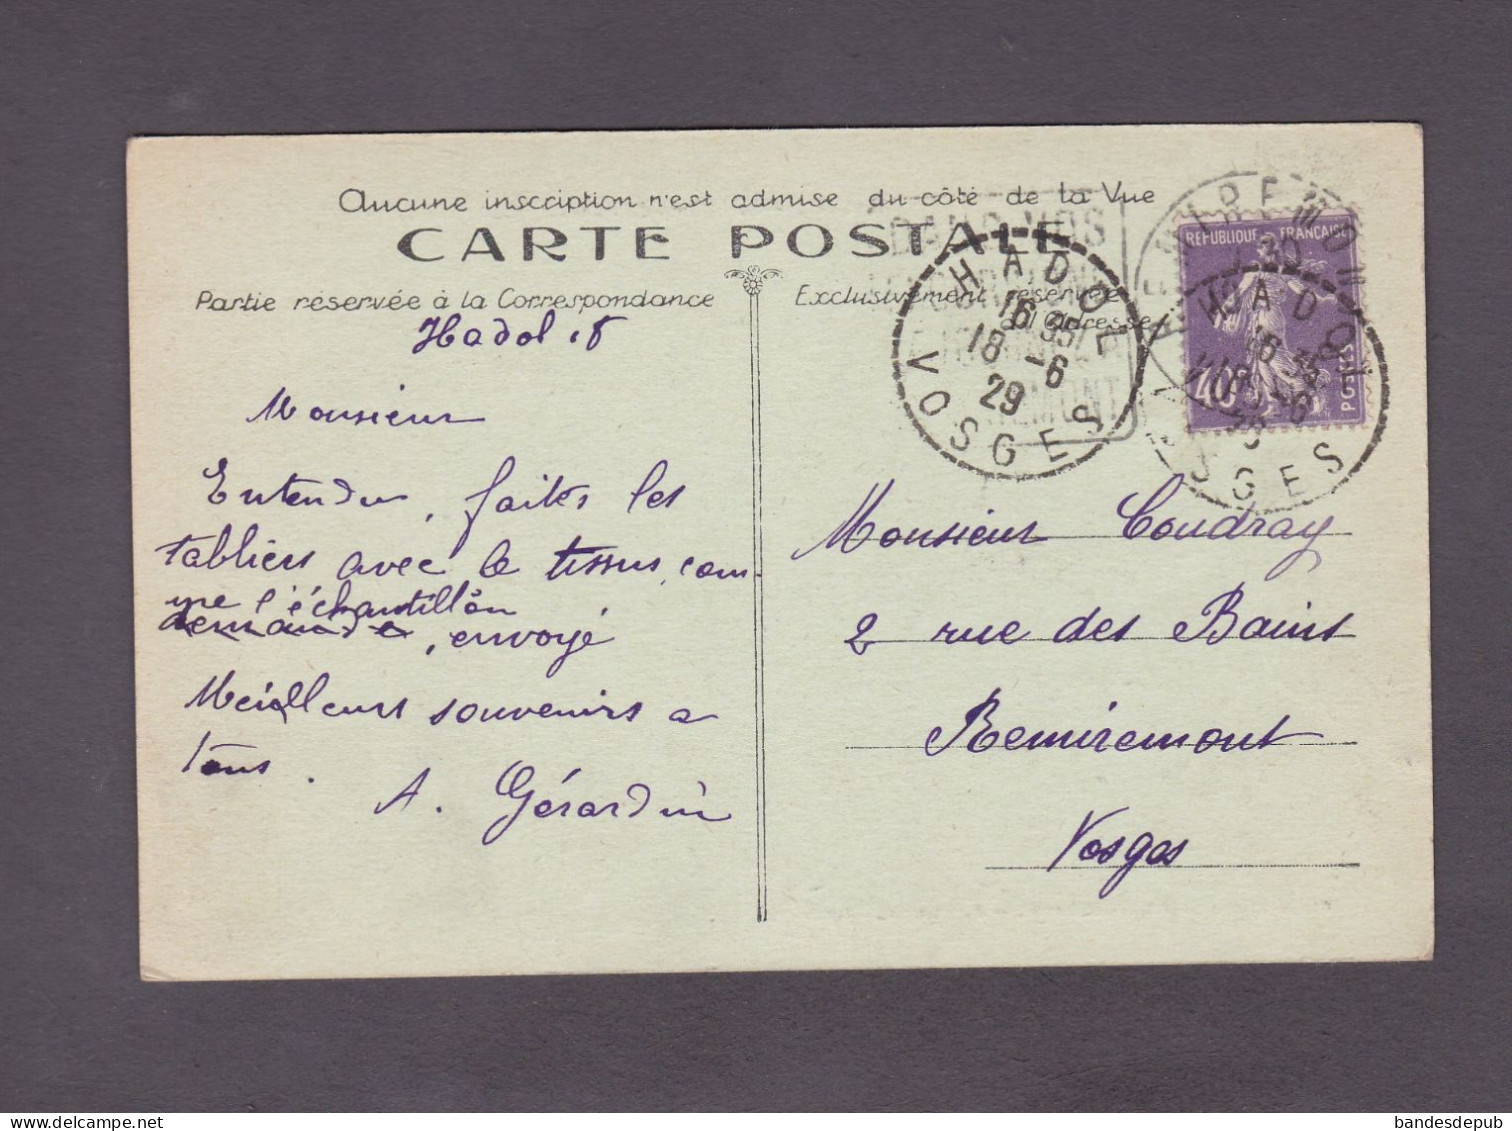 Aucune inscription n'est admise du côté de la Vue
CARTE POSTALE
Partie réservée à la Correspondance
Exclusivement réservé
à l'Adresse
Hadol 18
Monsieur
Entendu, faites les
tabliers avec le tissus, com-
me l'échantillon
demandé, envoyé
Meilleurs souvenirs a
tous.
A. Gérardin
HADOL
16 35
18 -6
29
VOSGES
REPUBLIQUE FRANÇAISE
40c
POSTES
HADOL
18 -6
Monsieur Coudray
2 rue des Bains
Remiremont
Vosges
bandesdepub